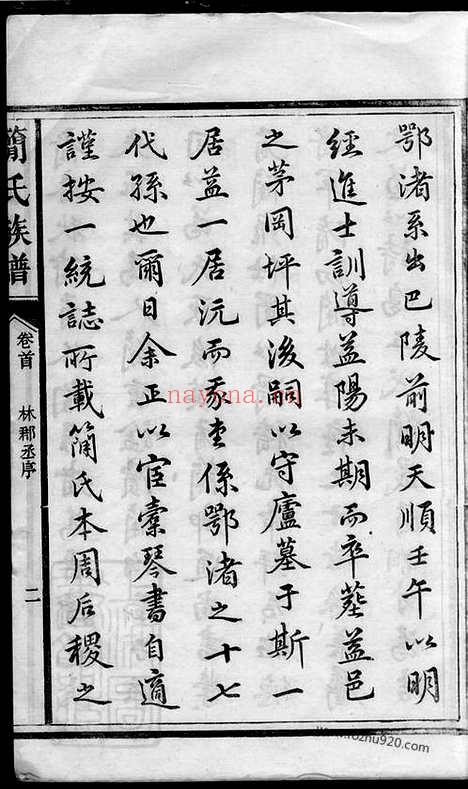 鄂渚系出巴陵前明天順壬午以明
經進士訓導益陽未期而卒葬益邑
之茅岡坪其後嗣以守廬墓于斯一
居益一居沅而豕奎係鄂渚之十七
代孫也爾日余正以宦橐琴書自適
謹按一統誌所載簡氏本周后稷之
簡氏族譜
卷首 林郡丞序 二
nayona.cn
www.fozhu920.com